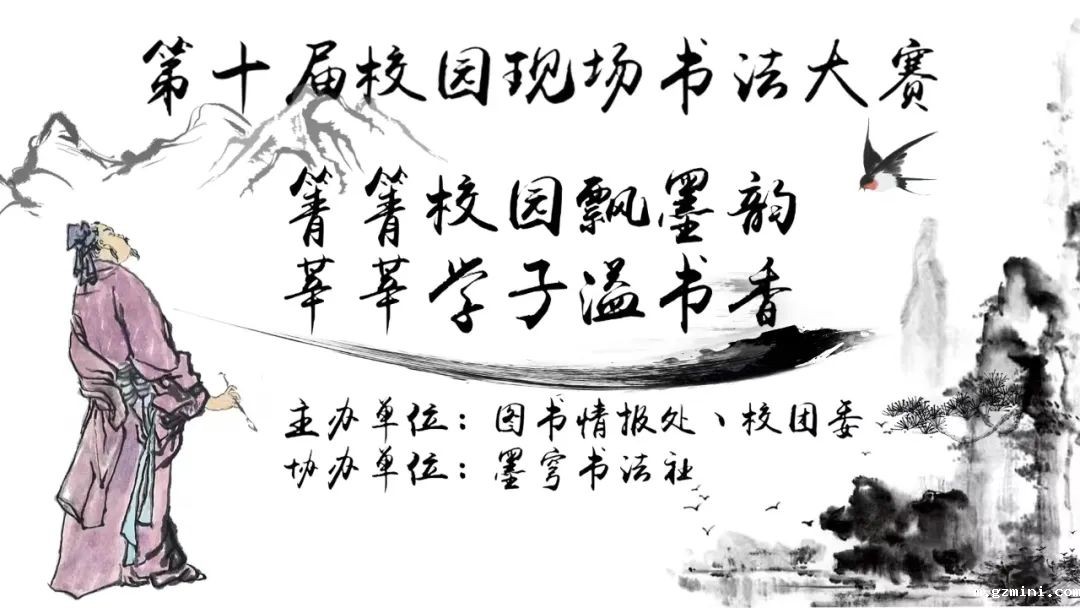 第十届校园现场书法大赛
箐箐校园飘墨韵
莘莘学子溢书香
主办单位：图书情报处、校团委
协办单位：墨穹书法社
w.gzmini.com